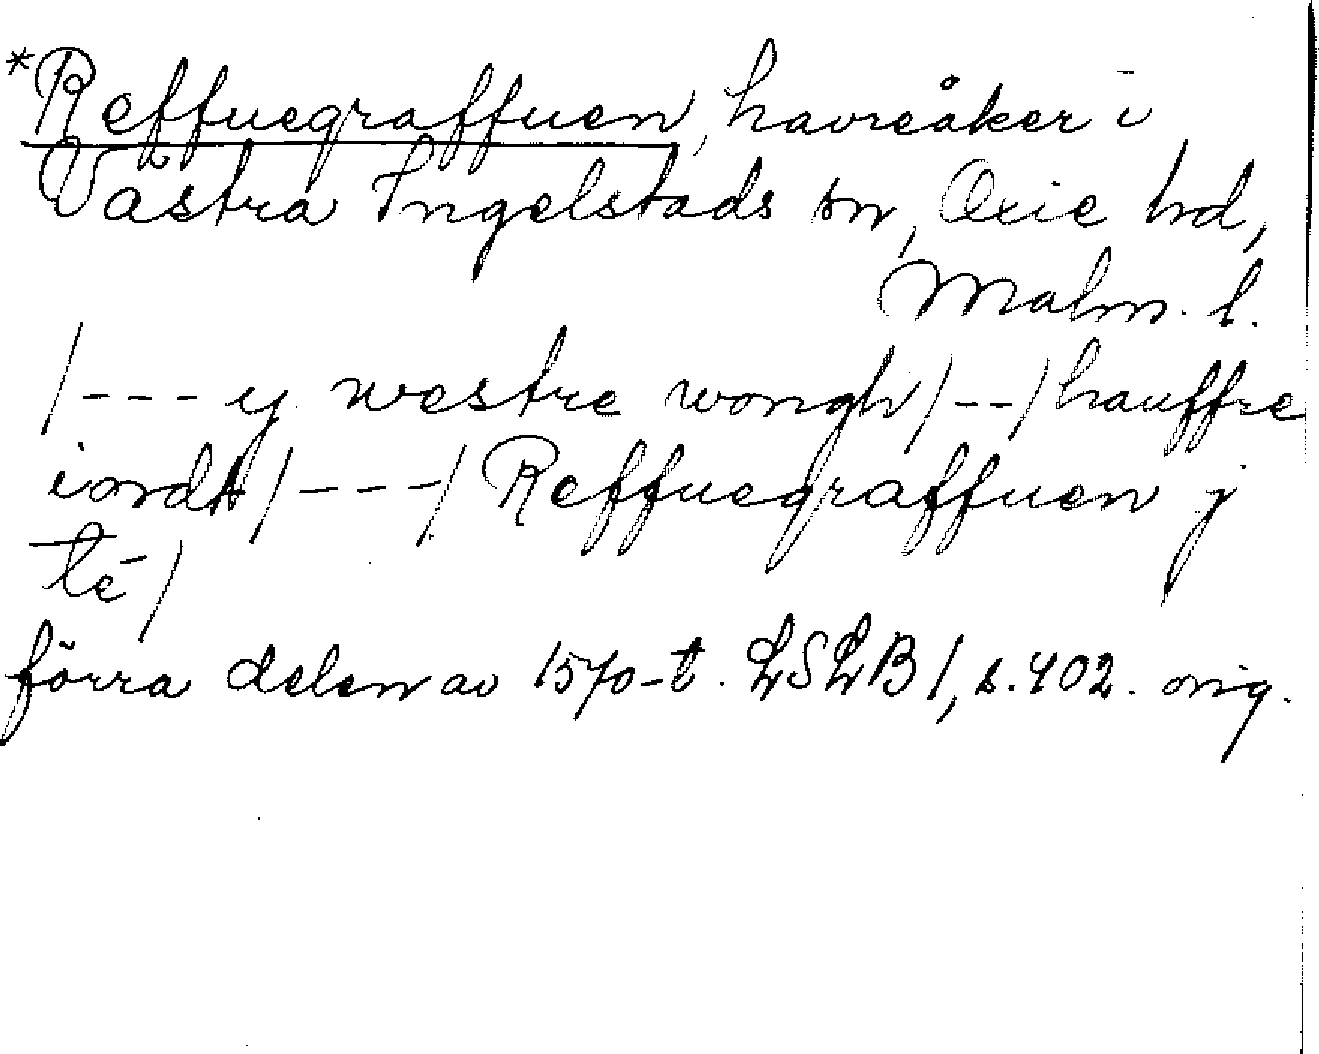 *Reffuegraffuen, havreåker i
Västra Ingelstads sn, Oxie hd,
Malm. l.
/--- y westre wongh/--/hauffre
iordt/---/ Reffuegraffuen j
té/
förra delen av 1570-t. LSLB 1, s. 402. orig.